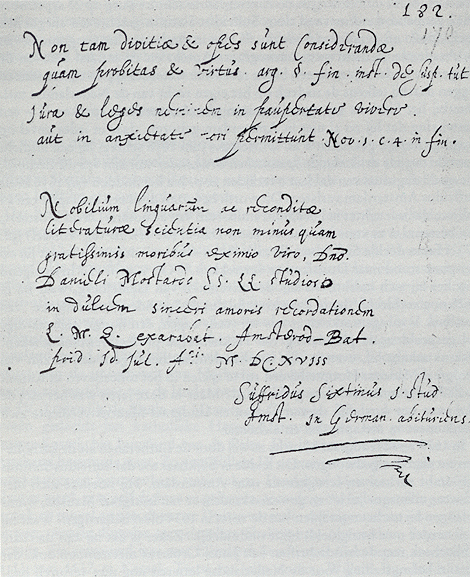 182.
170
Non tam divitiæ & opes sunt considerandæ
quam probitas & virtus. arg. §. fin. inst. de susp. tut
Jura & leges neminem in paupertate vivere.
aut in anxietate mori permittunt Nov. 1. c. 4. in fin.
Nobilium linguarum ac reconditæ
literaturæ scientia non minus quam
gratissimis moribus eximio viro, Dno.
Danieli Mostardo SS. LL studioso
in dulcem sinceri amoris recordationem
L. M. Q. exarabat. Amsterod-Bat.
prid. Id. Jul. MDCXVIII
Suffridus Sixtinus J. Stud
Amst. in German. abituriens.